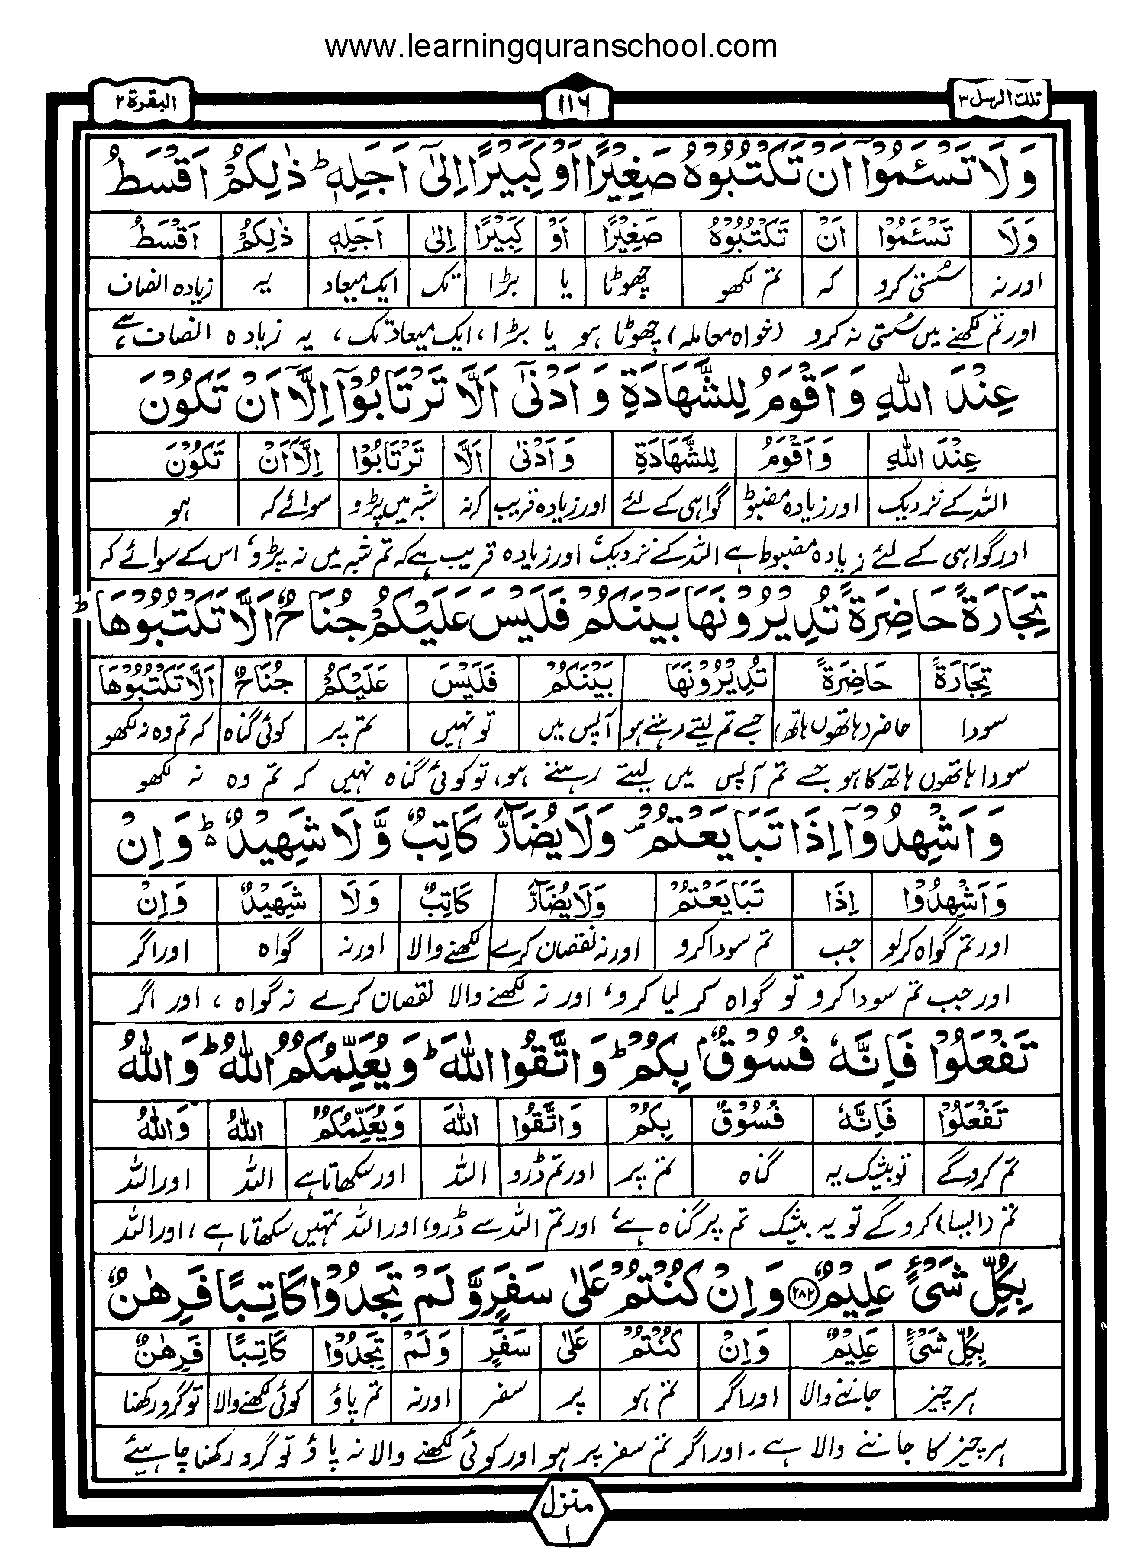 www.learningquranschool.com
تلك الرسل ٣
١١٦
البقرة ٢
وَلَا تَسْـَٔمُوْٓا اَنْ تَكْتُبُوْهُ صَغِيْرًا اَوْ كَبِيْرًا اِلٰٓى اَجَلِهٖ ؕ ذٰلِكُمْ اَقْسَطُ
وَلَا تَسْـَٔمُوْٓا اَنْ تَكْتُبُوْهُ صَغِيْرًا اَوْ كَبِيْرًا اِلٰٓى اَجَلِهٖ ذٰلِكُمْ اَقْسَطُ
اور نہ سُستی کرو کہ تم لکھو چھوٹا یا بڑا تک ایک میعاد یہ زیادہ انصاف
اور تم لکھنے میں سُستی نہ کرو (خواہ معاملہ) چھوٹا ہو یا بڑا، ایک میعاد تک، یہ زیادہ انصاف ہے
عِنْدَ اللّٰهِ وَاَقْوَمُ لِلشَّهَادَةِ وَاَدْنٰٓى اَلَّا تَرْتَابُوْٓا اِلَّآ اَنْ تَكُوْنَ
عِنْدَ اللّٰهِ وَاَقْوَمُ لِلشَّهَادَةِ وَاَدْنٰٓى اَلَّا تَرْتَابُوْٓا اِلَّآ اَنْ تَكُوْنَ
اللہ کے نزدیک اور زیادہ مضبوط گواہی کے لئے اور زیادہ قریب کہ نہ شبہ میں پڑو سوائے کہ ہو
اور گواہی کے لئے زیادہ مضبوط ہے اللہ کے نزدیک اور زیادہ قریب ہے کہ تم شبہ میں نہ پڑو، اس کے سوائے کہ
تِجَارَةً حَاضِرَةً تُدِيْرُوْنَهَا بَيْنَكُمْ فَلَيْسَ عَلَيْكُمْ جُنَاحٌ اَلَّا تَكْتُبُوْهَا ؕ
تِجَارَةً حَاضِرَةً تُدِيْرُوْنَهَا بَيْنَكُمْ فَلَيْسَ عَلَيْكُمْ جُنَاحٌ اَلَّا تَكْتُبُوْهَا
سودا حاضر (ہاتھوں ہاتھ) جسے تم لیتے رہتے ہو آپس میں تو نہیں تم پر کوئی گناہ کہ تم وہ نہ لکھو
سودا ہاتھوں ہاتھ کا ہو جسے تم آپس میں لیتے رہتے ہو، تو کوئی گناہ نہیں کہ تم وہ نہ لکھو
وَاَشْهِدُوْٓا اِذَا تَبَايَعْتُمْ ۪ وَلَا يُضَآرَّ كَاتِبٌ وَّلَا شَهِيْدٌ ؕ وَاِنْ
وَاَشْهِدُوْٓا اِذَا تَبَايَعْتُمْ وَلَا يُضَآرَّ كَاتِبٌ وَلَا شَهِيْدٌ وَاِنْ
اور تم گواہ کرلو جب تم سودا کرو اور نہ نقصان کرے لکھنے والا اور نہ گواہ اور اگر
اور جب تم سودا کرو تو گواہ کر لیا کرو، اور نہ لکھنے والا نقصان کرے نہ گواہ، اور اگر
تَفْعَلُوْا فَاِنَّهٗ فُسُوْقٌۢ بِكُمْ ؕ وَاتَّقُوا اللّٰهَ ؕ وَيُعَلِّمُكُمُ اللّٰهُ ؕ وَاللّٰهُ
تَفْعَلُوْا فَاِنَّهٗ فُسُوْقٌ بِكُمْ وَاتَّقُوا اللّٰهَ وَيُعَلِّمُكُمُ اللّٰهُ وَاللّٰهُ
تم کرو گے تو بیشک یہ گناہ تم پر اور تم ڈرو اللہ اور سکھاتا ہے اللہ اور اللہ
تم (ایسا) کرو گے تو یہ بیشک تم پر گناہ ہے، اور تم اللہ سے ڈرو، اور اللہ تمہیں سکھاتا ہے، اور اللہ
بِكُلِّ شَيْءٍ عَلِيْمٌ ﴿٢٨٢﴾ وَاِنْ كُنْتُمْ عَلٰى سَفَرٍ وَّلَمْ تَجِدُوْا كَاتِبًا فَرِهٰنٌ
بِكُلِّ شَيْءٍ عَلِيْمٌ وَاِنْ كُنْتُمْ عَلٰى سَفَرٍ وَلَمْ تَجِدُوْا كَاتِبًا فَرِهٰنٌ
ہر چیز جاننے والا اور اگر تم ہو پر سفر اور نہ تم پاؤ کوئی لکھنے والا تو گرو رکھنا
ہر چیز کا جاننے والا ہے۔ اور اگر تم سفر پر ہو اور کوئی لکھنے والا نہ پاؤ تو گرو رکھنا چاہیئے
منزل ١